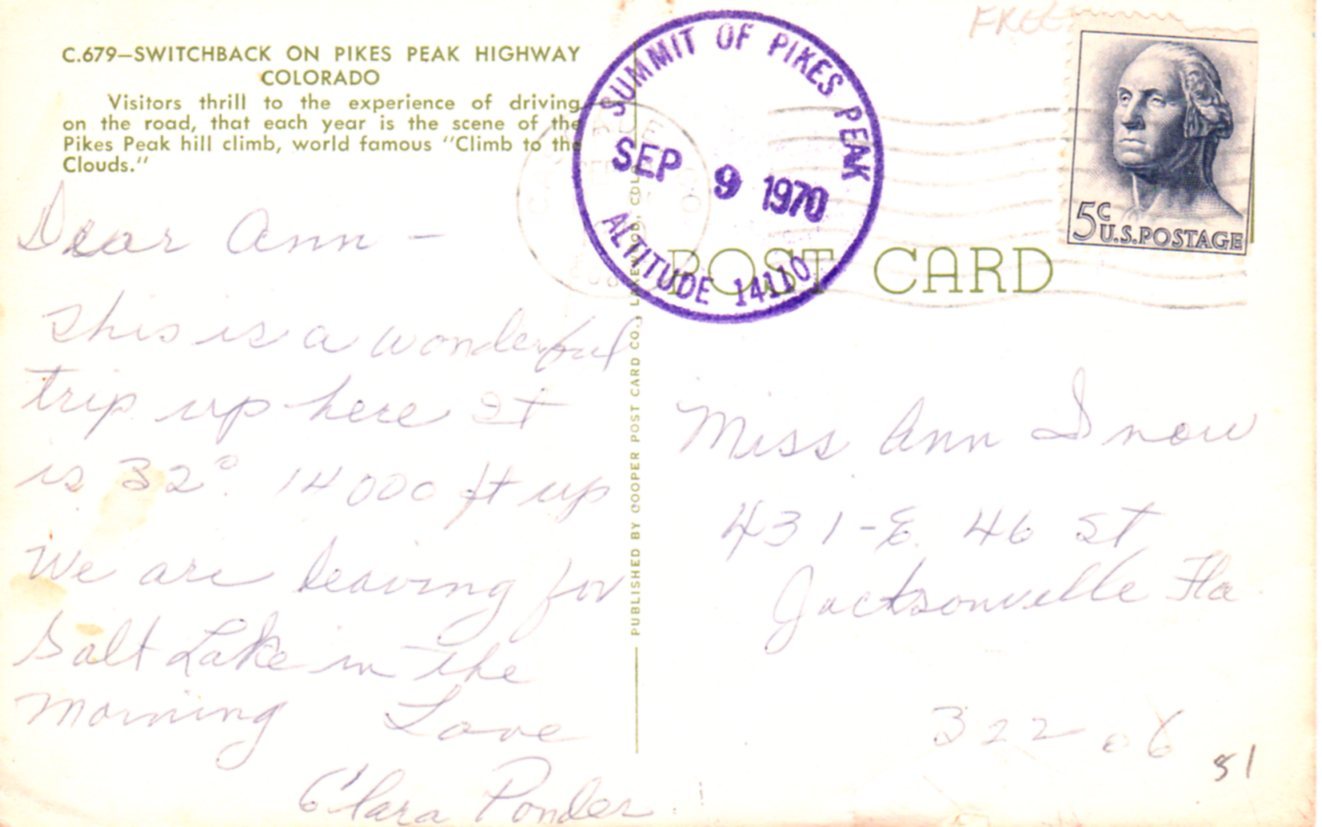 C.679—SWITCHBACK ON PIKES PEAK HIGHWAY
COLORADO
Visitors thrill to the experience of driving
on the road, that each year is the scene of the
Pikes Peak hill climb, world famous "Climb to the
Clouds."
Dear Ann –
This is a wonderful
trip up here It
is 32°. 14000 ft up
We are leaving for
Salt Lake in the
morning Love
Clara Ponder
PUBLISHED BY COOPER POST CARD CO., LAKEWOOD, COLO.
SUMMIT OF PIKES PEAK
SEP 9 1970
ALTITUDE 14110
FREE
5c
U.S. POSTAGE
POST CARD
Miss Ann Snow
431-E. 46 St
Jacksonville Fla
32206
81